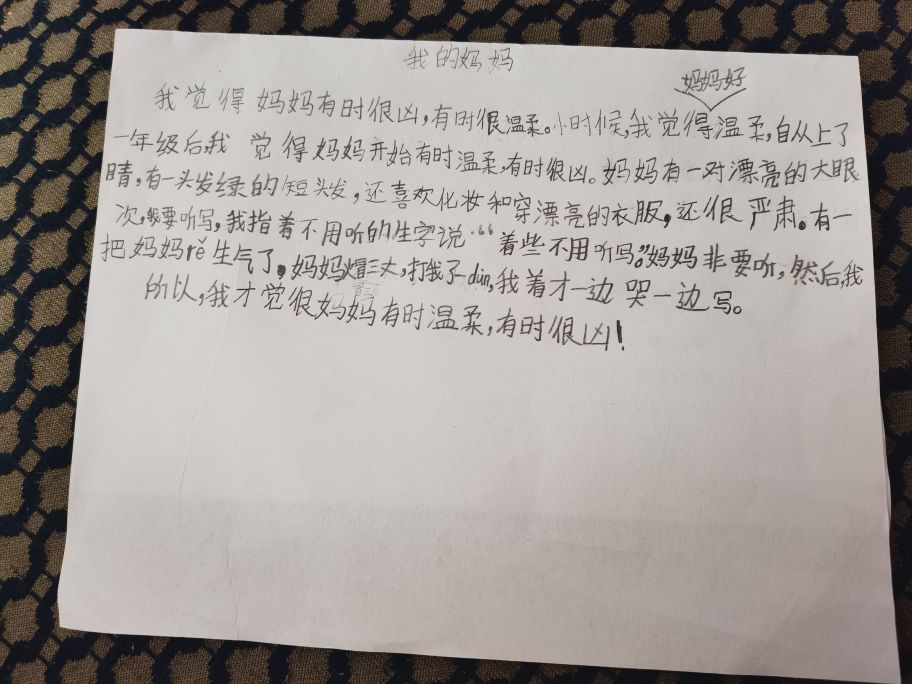 我的妈妈
妈妈好
我觉得妈妈有时很凶,有时很温柔。小时候,我觉得温柔,自从上了
一年级后,我觉得妈妈开始有时温柔,有时很凶。妈妈有一对漂亮的大眼
睛,有一头发绿的短头发,还喜欢化妆和穿漂亮的衣服,还很严肃。有一
次,我要听写,我指着不用听的生字说“着些不用听写。”妈妈非要听,然后,我
把妈妈rě生气了,妈妈火冒三丈,打我了dùn,我着才一边哭一边写。
所以,我才觉很妈妈有时温柔,有时很凶!